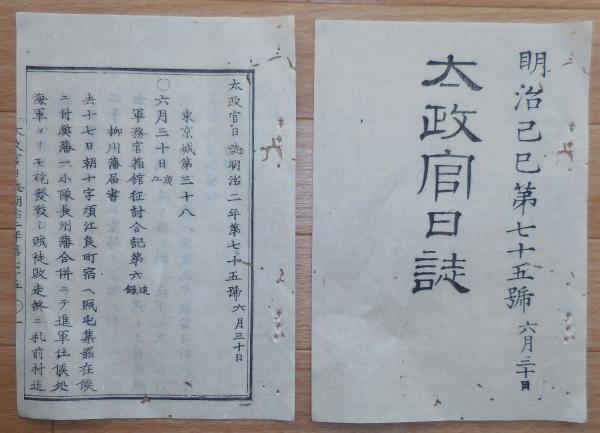 明治己巳第七十五號 六月三十日
太政官日誌
太政官日誌明治二年第七十五號 六月三十日
東京城第三十八
○六月三十日 庚江
軍務官箱館征討合記第六 追録
柳川藩届書
去十七日朝十字頃江良町宿ヘ賊屯集罷在候
ニ付奥藩一小隊長州藩合併ニテ進軍仕候処
海軍ヨリモ砲發救 賊徒敗走終ニ札前村迄
太政官日誌明治二年第七十五 ○一